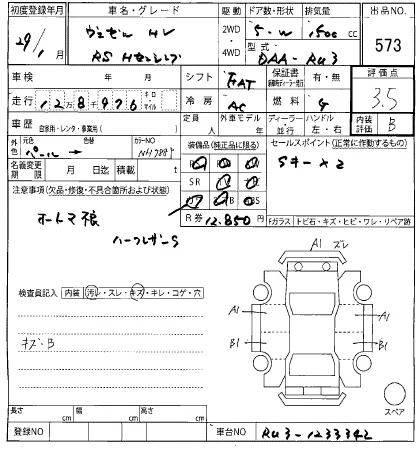 初度登録年月 車名・グレード 駆動 ドア数・形状 排気量 出品NO.
29/1 ヴェゼル HV 2WD 5-W 1500 cc 573
年 月 RS Hセンシング 4WD 型式 DAA-RU3
車検 年 月 シフト FAT 保証書 有・無 評価点
走行 12万8976 キロ マイル 冷房 AC 燃料 G 3.5
車歴 自家用・レンタ・事業用( ) 定員 人 外車モデル 年 ディーラー・並行 ハンドル 左・右 内装評価 B
外色 元色 パール → 色替 カラーNO NH788P 装備品(純正品に限る) セールスポイント(正常に作動するもの)
名義変更期限 月 日迄 積載 t SR Sキー×2
注意事項(欠品・修復・不具合箇所および状態)
R券 12,850円
オートマ狼
ハーフレザーS
Fガラス トビ石・キズ・ヒビ・ワレ・リペア跡
A1 ズレ
検査員記入 内装 汚レ・スレ・キズ・キレ・コゲ・穴
A1 A1
キズ・B B1 B1
スペア
長さ cm 幅 cm 高さ cm
登録NO 車台NO RU3-1233342